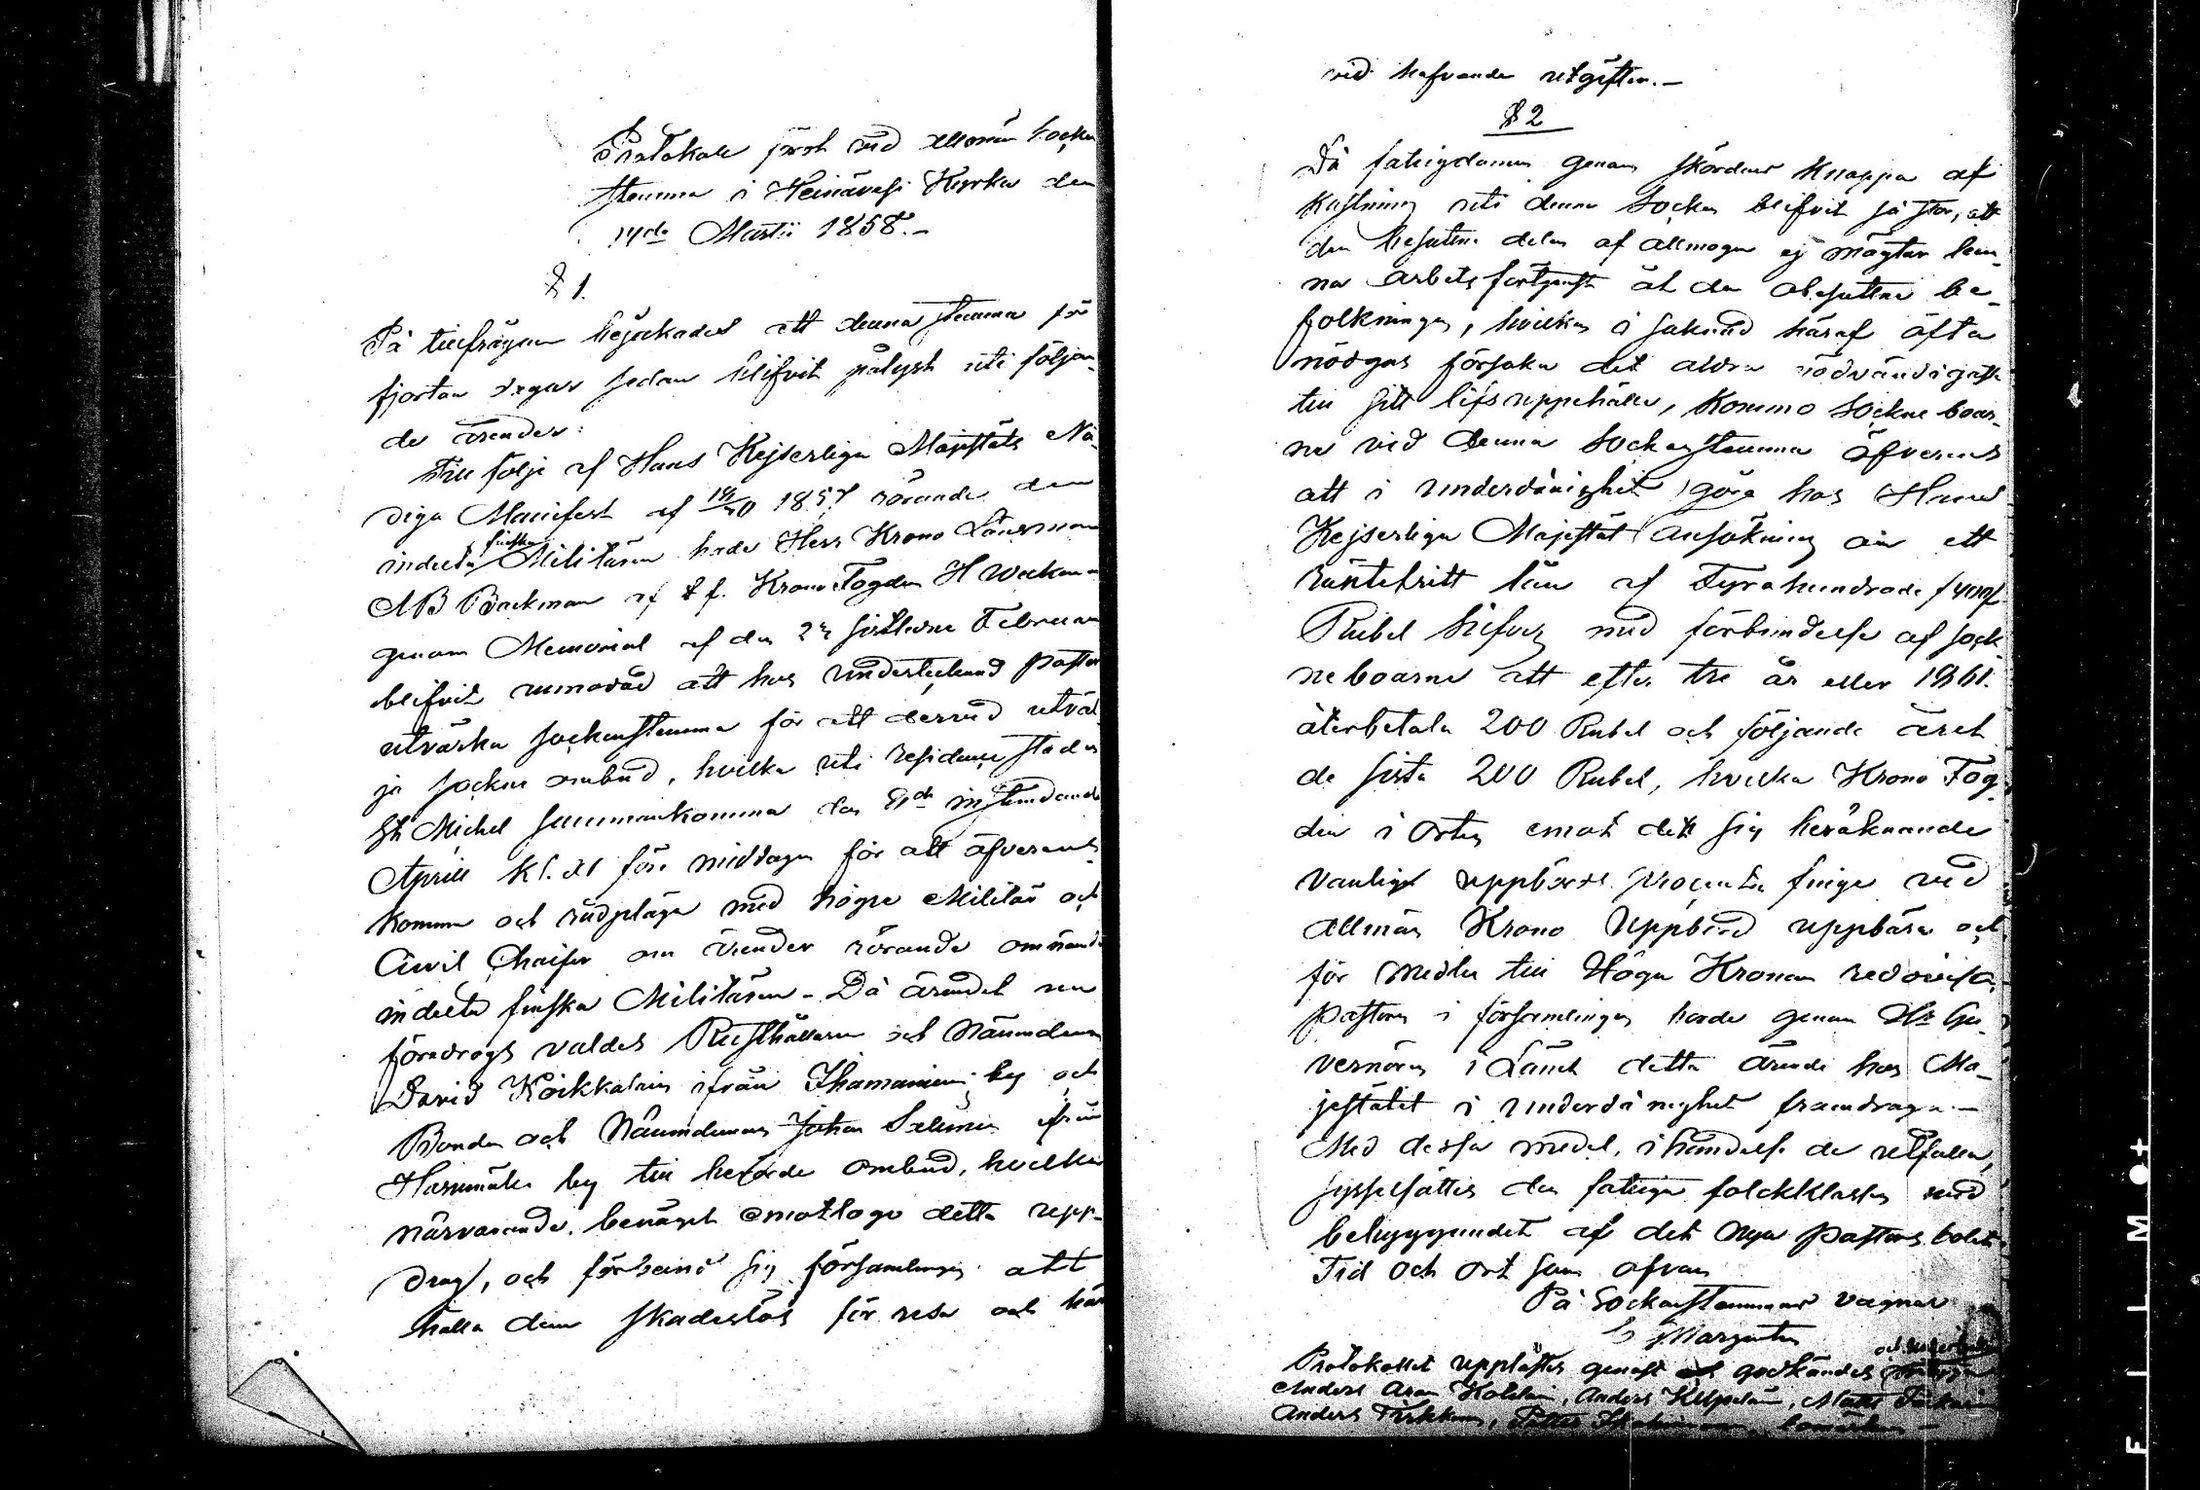 Protokoll fördt vid allmän Socken
stemma i Heinävesi Kyrka den
14de Martii 1858.-
§ 1.
På tillfrågan bejakades att denna stemma för
fjorton dagar sedan blifvit pålyst uti följan-
de ärender:
Till följe af Hans Kejserliga Majestäts Nå-
diga Manifest af 1857 rörande den
indelta finska Militären hade Herr Krono Länsman
Backman af t. f. Krono Fogden H
genom Memorial af den sistledne Februari
blifvit anmodad att hos undertecknad Pastor
utvärka sockenstemma för att dervid utväl-
ja Socken ombud, hvilka uti residence staden
St Michel sammankomma den instundande
April kl. 11 före middagen för att öfverens-
komma och rådpläga med högre Militär och
Civil Cheifer om ärender rörande omnämde
indelta finska Militären - Då ärendet nu
föredrogs valdes Rusthållaren och Nämndeman
David Koikkalain ifrån Ihamaniemi by och
Bonden och Nämndeman Johan ifrån
Hasumäki by till berörde ombud, hvilka
närvarande, benäget emottogo detta upp-
drag, och förband sig församlingen att
hålla dem skadeslös för resa och här
vid hafvande utgifter.-
§ 2
Då fattigdomen genom skördens knappa af
kastning uti denna Socken blifvit så stor, att
den besutne delen af allmogen ej mägtar lem-
na arbetsförtjenst åt den obesuttne be-
folkningen, hvilken i saknad häraf ofta
nödgas försaka det aldra nödvändigaste
till sitt lifs uppehälle, kommo Sockne boar-
ne vid denna Sockenstemma öfverens
att i underdånighet göra hos Hans
Kejserliga Majestät ansökning om ett
räntefritt lån af Fyrahundrade
Rubel Silfver med förbindelse af sock-
neboarne att efter tre år eller 1861.
återbetala 200 Rubel och följande året
de sista 200 Rubel, hvilka Krono Fog-
den i orten emot det sig beräknande
vanligt uppbörds procenter finge vid
allmän Krono Uppbörd uppbära och
för medlen till Höga Kronan redovisa,
Pastorn i församlingen borde genom Hr Gu-
vernören i Länet detta ärende hos Ma-
jestätet i underdånighet framdraga.-
Med dessa medel, i händelse de utfalla,
sysselsättes den fattiga folckklassen med
bebyggandet af det nya Pastors bolet
Tid och ort som ofvan
På Sockenstemmans vagnar
Protokollet upplästes genast och godkändes
Anders Aron Anders Matts
Anders